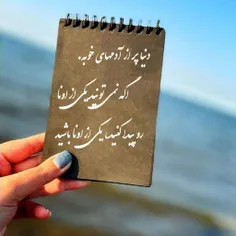 دنیا پر از آدمهای خوبه،
اگه نمی تونید یکی از اونا
رو پیدا کنید، یکی از اونا باشید